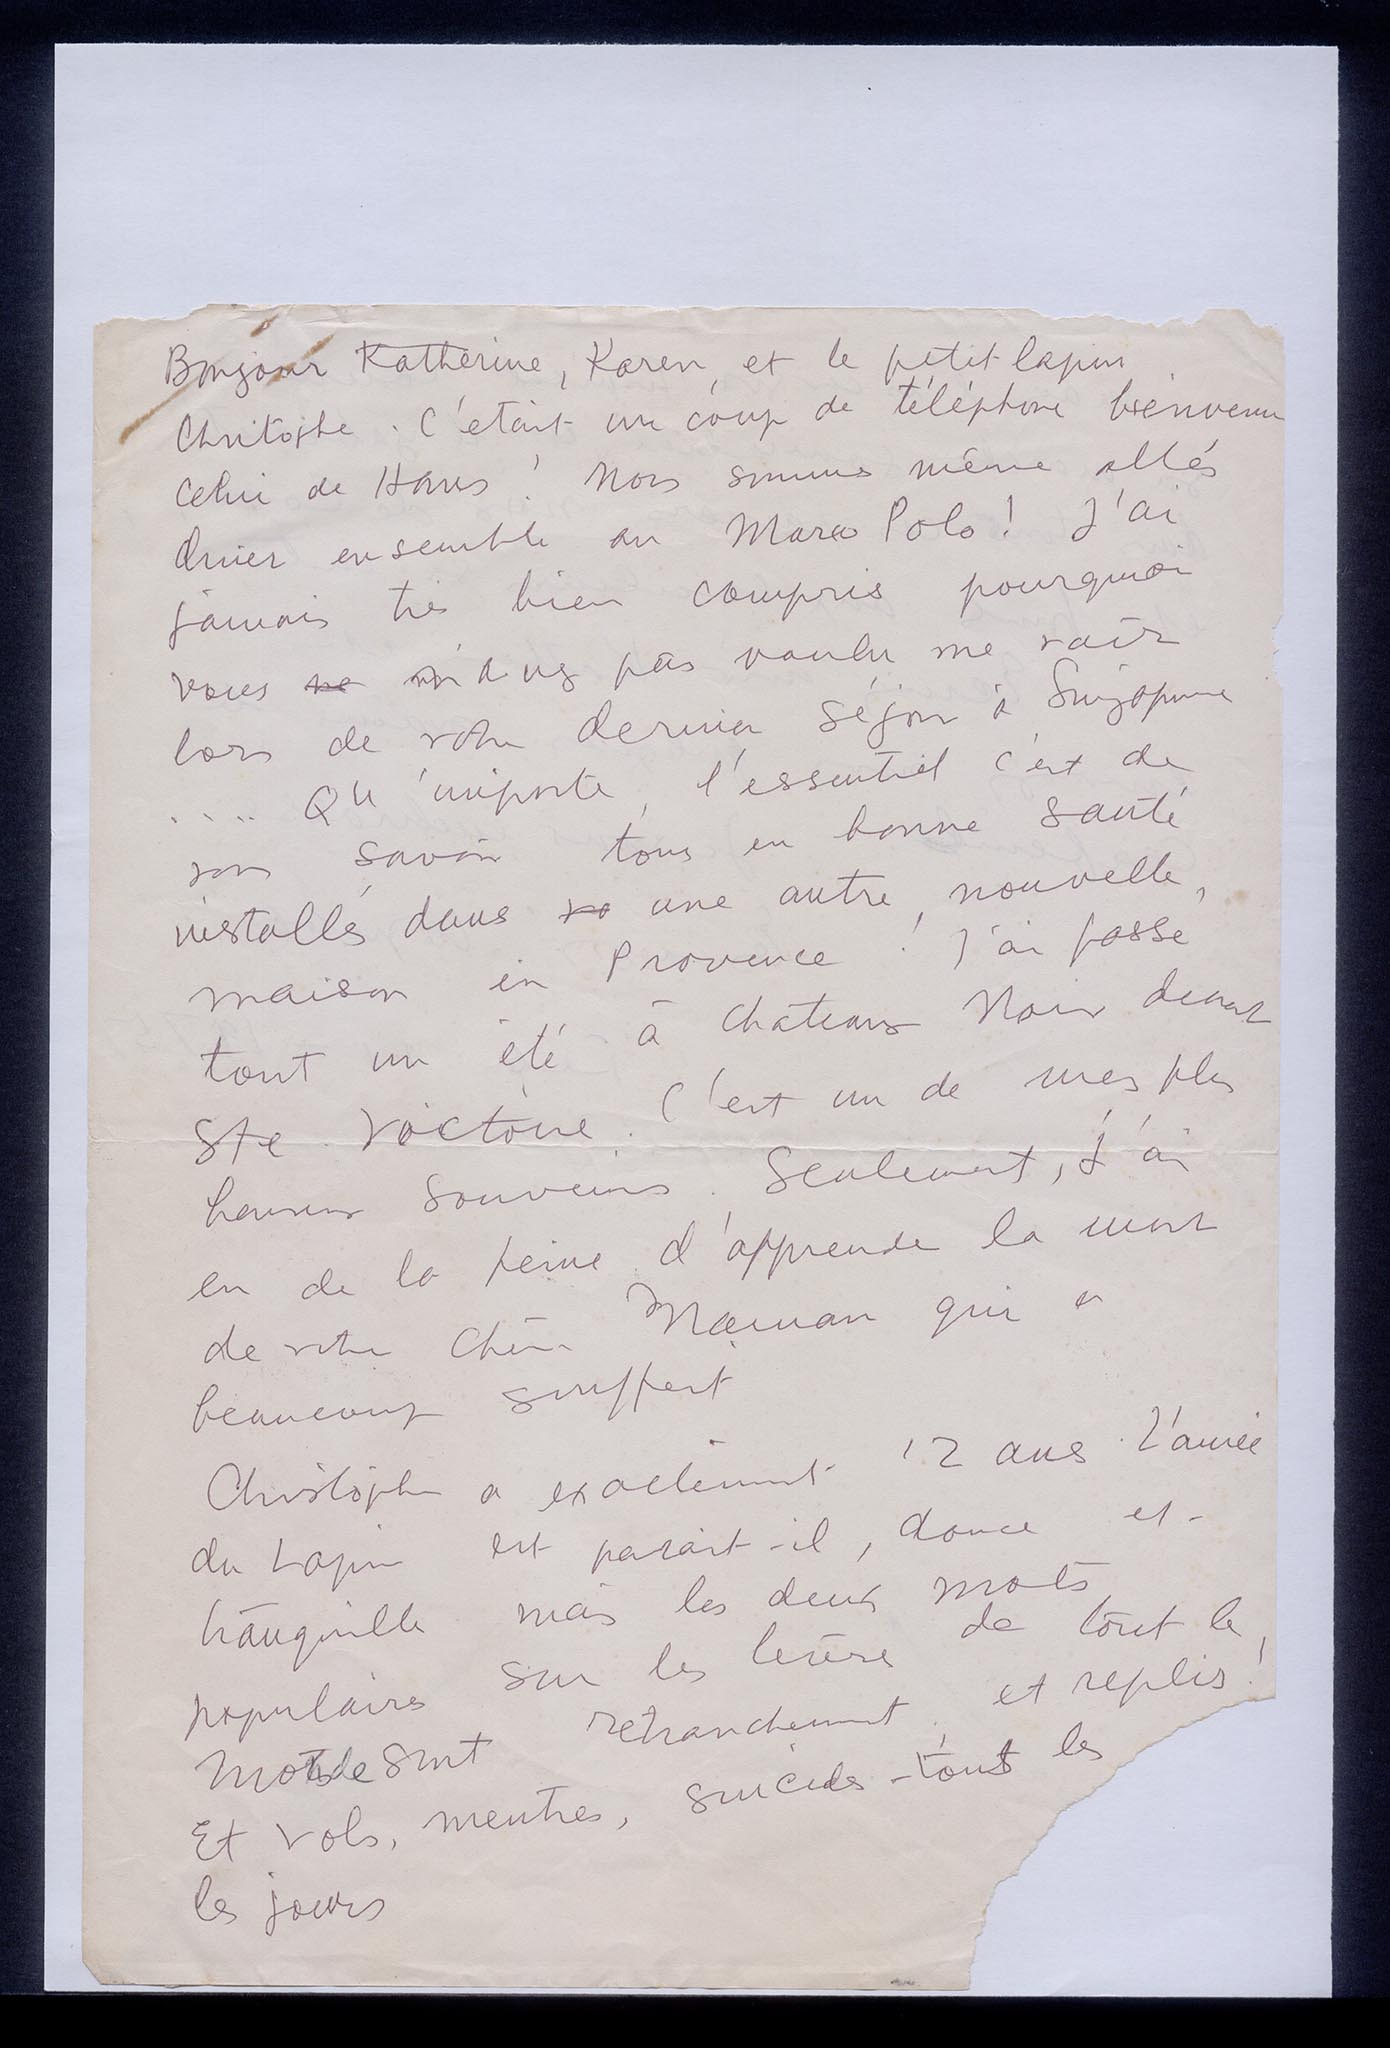 Bonjour Katherine, Karen, et le petit lapin
Chritophe. C'était un coup de téléphone bienvenu
celui de Hans! Nous sommes même allés
diner ensemble au Marco Polo! J'ai
jamais très bien compris pourquoi
vous ne m'avez pas voulu me voir
lors de votre dernier séjour à Singapour
.... Qu'importe, l'essentiel c'est de
vous savoir tous en bonne santé
installés dans une autre, nouvelle,
maison en Provence! J'ai passé
tout un été à Chateau Noir devant
Ste. Victoire. C'est un de mes plus
heureux souvenirs. Seulement, j'ai
eu de la peine d'apprendre la mort
de votre chère Maman qui a
beaucoup souffert
Christophe a exactement 12 ans. L'année
du Lapin est parait-il, douce et
tranquille mais les deux mots
populaires sur les lèvres de tout le
monde sont retranchement et replis!
Et vols, meutres, suicides - tous les
les jours